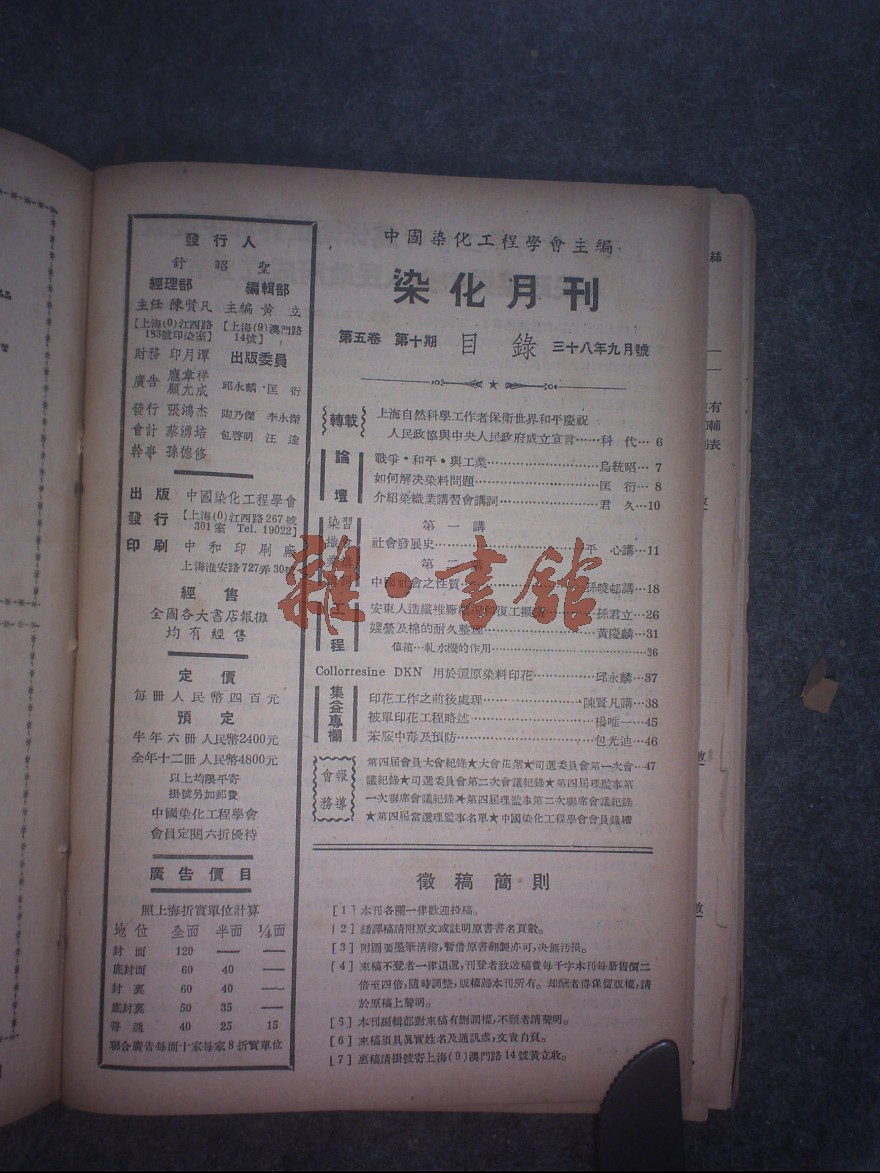 中國染化工程學會主編
染化月刊
第五卷 第十期 目錄 三十八年九月號
轉載
上海自然科學工作者保衛世界和平慶祝
人民政協與中央人民政府成立宣言……科代…6
論壇
戰爭·和平·與工業……烏統昭…7
如何解决染料問題……匡衍…8
介紹染織業講習會講詞……君久…10
染織業
習會講
第一講
社會發展史……平心講…11
第二講
中國社會之性質……孫曉邨講…18
工程
安東人造纖維廠……復工……孫君立…26
嫘縈及棉的耐久整理……黃慶麟…31
值箱…軋水機的作用……36
Collorresine DKN 用於還原染料印花……邱永麟…37
集益專欄
印花工作之前後處理……陳賢凡講…38
被單印花工程略述……楊唯一…45
苯胺中毒及預防……包光迪…46
會務報導
第四屆會員大會紀錄★大會花絮★司選委員會第一次會…47
議紀錄★司選委員會第二次會議紀錄★第四屆理監事第
一次聯席會議紀錄★第四屆理監事第二次聯席會議紀錄
★第四屆當選理監事名單★中國染化工程學會會員錄續
徵稿簡則
[1] 本刊各欄一律歡迎投稿。
[2] 繙譯稿請附原文或註明原書書名頁數。
[3] 附圖要墨筆清繪,暫借原書翻製亦可,决無污損。
[4] 來稿不登者一律退還,刊登者致送稿費每千字本刊每册售價二
倍至四倍,隨時調整,版權歸本刊所有。却酬者得保留版權,請
於原稿上聲明。
[5] 本刊編輯部對來稿有刪潤權,不願者請聲明。
[6] 來稿須具眞實姓名及通訊處,文責自負。
[7] 惠稿請掛號寄上海(9)澳門路14號黃立收。
發行人
舒昭聖
經理部 編輯部
主任 陳賢凡 主編 黃立
[上海(0)江西路183號印染室] [上海(9)澳門路14號]
財務 印月潭 出版委員
廣告 龐韋祥 顧尤成 邱永麟·匡衍
發行 張鴻杰 陶乃傑 李永傑
會計 蔡湧培 包啓明 汪逵
幹事 孫德修
出版 中國染化工程學會
發行 [上海(0)江西路267號301室 Tel. 19022]
印刷 中和印刷廠
上海淮安路727弄30號
經售
全國各大書店報攤
均有經售
定價
每冊人民幣四百元
預定
半年六冊 人民幣2400元
全年十二冊 人民幣4800元
以上均限平寄
掛號另加郵費
中國染化工程學會
會員定閱六折優待
廣告價目
照上海折實單位計算
地位 全面 半面 1/4面
封面 120 — —
底封面 60 40 —
封裏 60 40 —
底封裏 50 35 —
普通 40 25 15
聯合廣告每面十家每家8折實單位
雜·書館